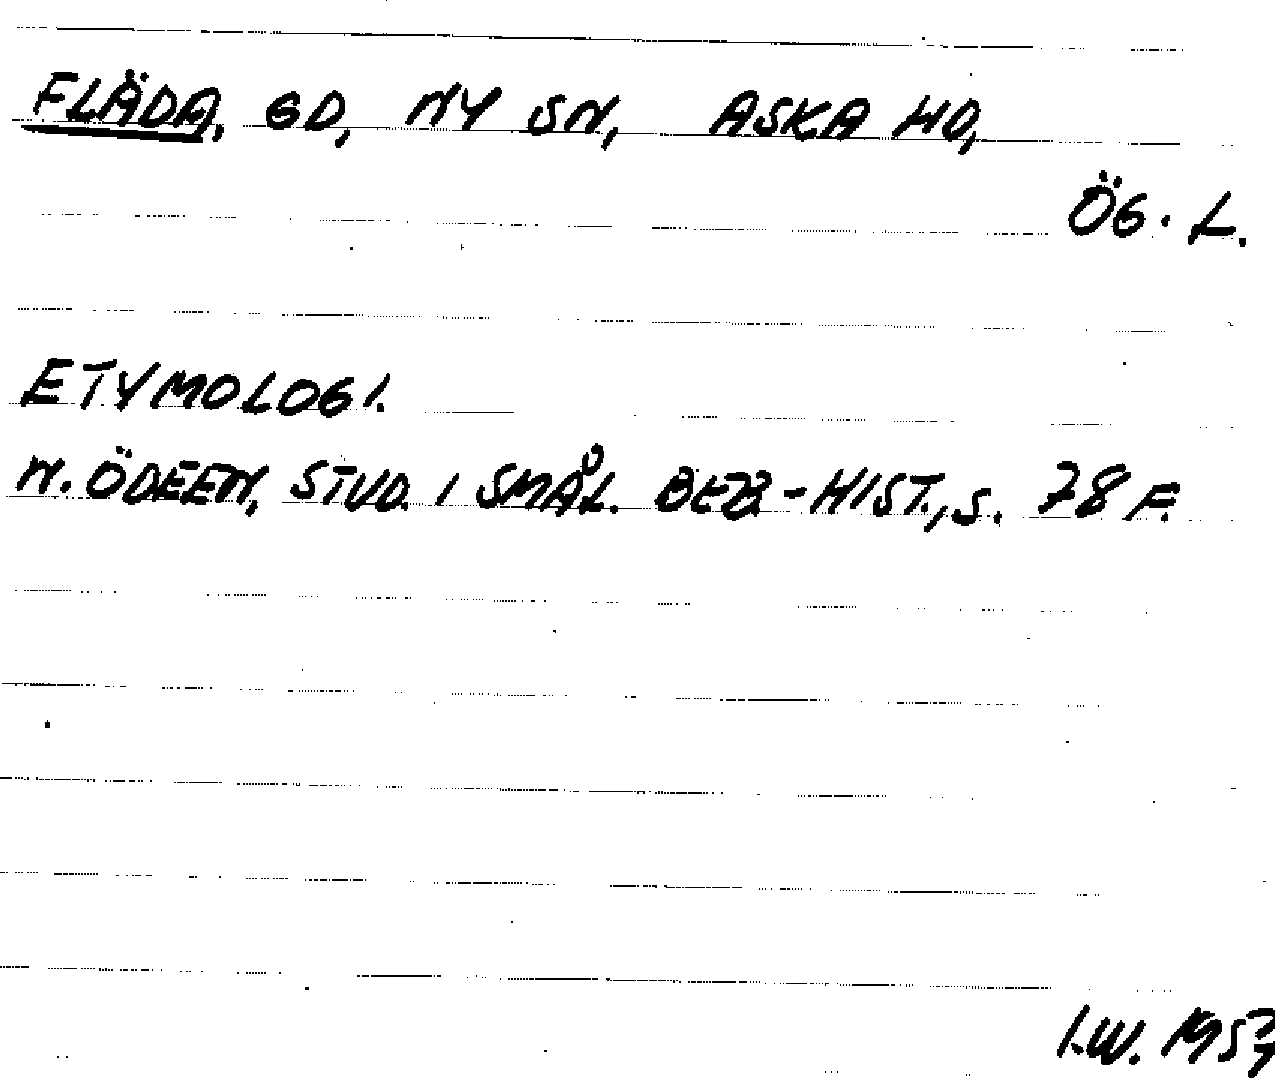 FLÄDA, GD, NY SN, ASKA HD,
ÖG. L.
ETYMOLOGI.
N. ÖDEEN, STUD. I SMÅL. BEB.-HIST., S. 78 F.
I.W. 1957